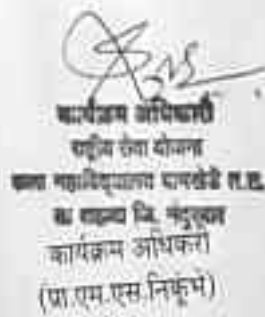 कार्यक्रम अधिकारी
राष्ट्रीय सेवा योजना
कला महाविद्यालय बामखेडे त.त.
ता शहादा जि. नंदुरबार
कार्यक्रम अधिकरी
(प्रा.एम.एस.निकुंभे)